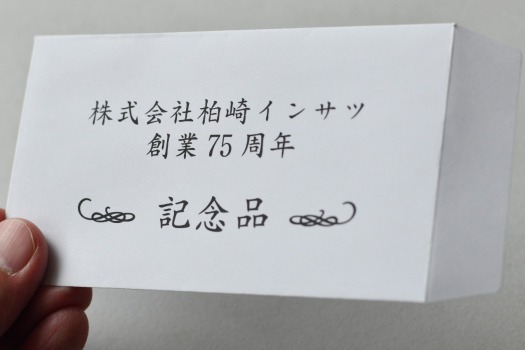 株式会社柏崎インサツ
創業75周年
記念品